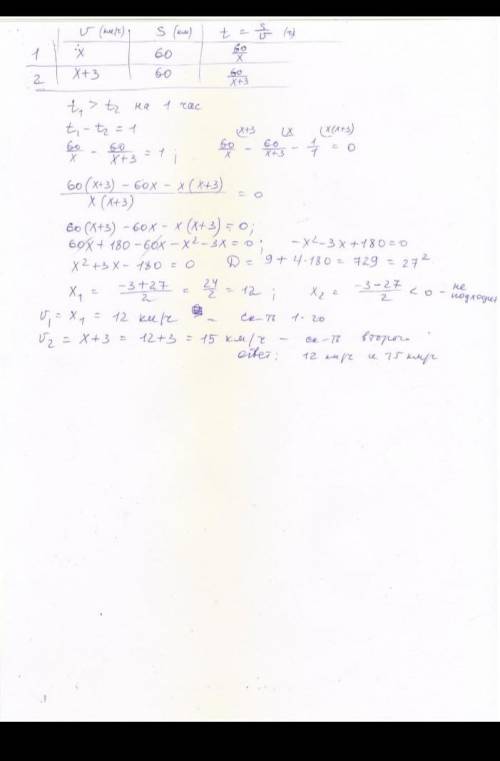 v (км/ч) S (км) t = S/v (ч)
1 x 60 60/x
2 x+3 60 60/(x+3)
t₁ > t₂ на 1 час
t₁ - t₂ = 1
60/x - 60/(x+3) = 1 ; 60/x - 60/(x+3) - 1/1 = 0
(60(x+3) - 60x - x(x+3))/(x(x+3)) = 0
60(x+3) - 60x - x(x+3) = 0;
60x + 180 - 60x - x² - 3x = 0 ; -x² - 3x + 180 = 0
x² + 3x - 180 = 0 D = 9 + 4·180 = 729 = 27²
x₁ = (-3+27)/2 = 24/2 = 12 ; x₂ = (-3-27)/2 < 0 - не подходит
v₁ = x₁ = 12 км/ч - ск-ть 1-го
v₂ = x+3 = 12+3 = 15 км/ч - ск-ть второго
ответ: 12 км/ч и 15 км/ч